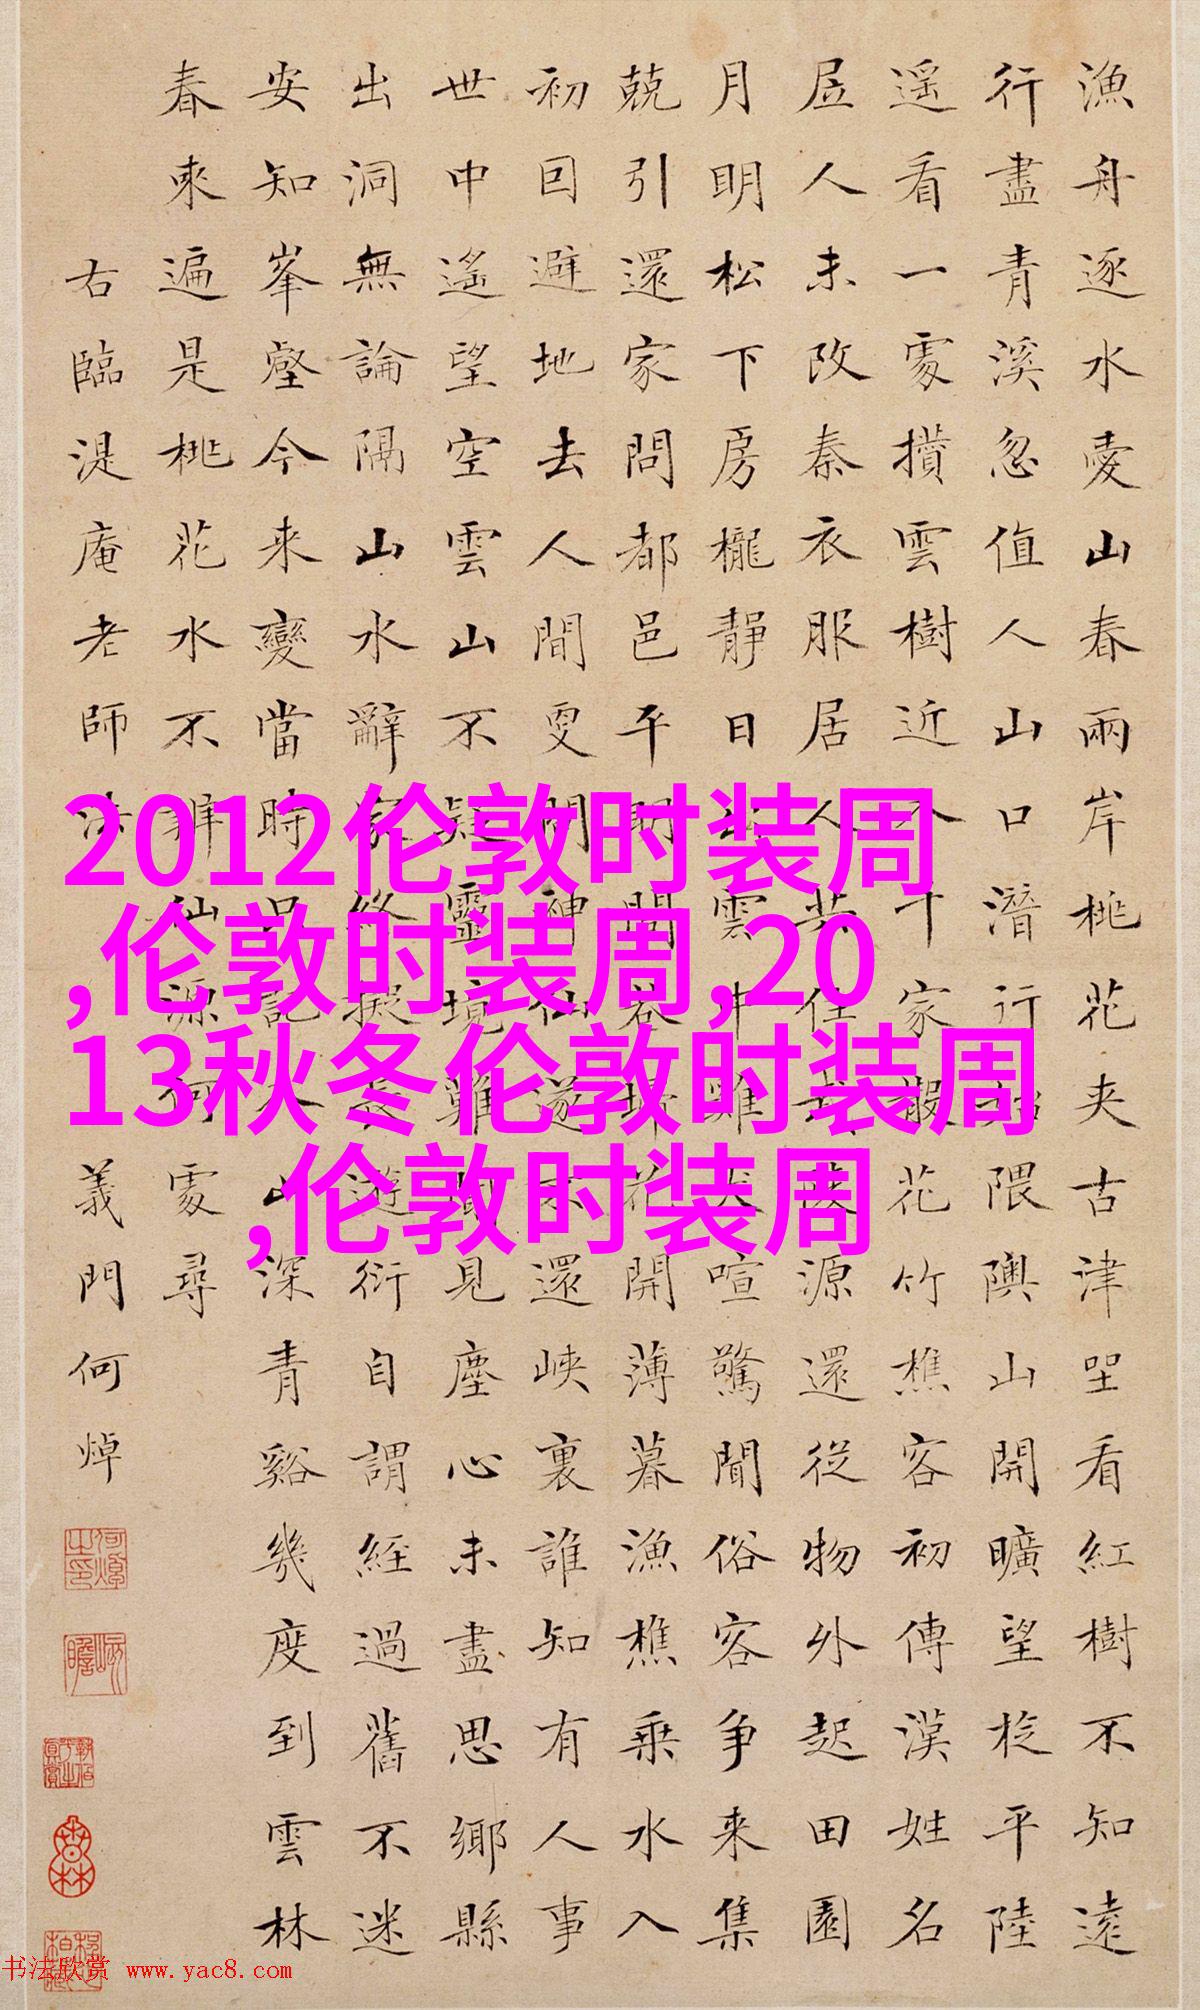 漁舟逐水愛山春兩岸桃花夾古津坐看紅樹不知遠
行盡青溪忽值人山口潛行始隈隩山開曠望旋平陸
遥看一處攢雲樹近入千家散花竹樵客初傳漢姓名
居人未改秦衣服居人共住武陵源還從物外起田園
月明松下房櫳靜日出雲中雞犬喧驚聞俗客争来集
競引還家問都邑平明閭巷掃花開薄暮漁樵乘水入
初回避地去人間更問神仙遂不還峽裏誰知有人事
世中遙望空雲山不疑靈境難聞見塵心未盡思鄉縣
出洞無論隔山水辭家終擬長遊衍自謂經過舊不迷
安知峯壑今来變當時只記入山深青谿幾度到雲林
春來遍是桃花水不辨仙源何處尋
右臨湜庵老師法
義門何焯
2012伦敦时装周
,伦敦时装周,20
13秋冬伦敦时装周
,伦敦时装周
书法欣赏 www.yac8.com